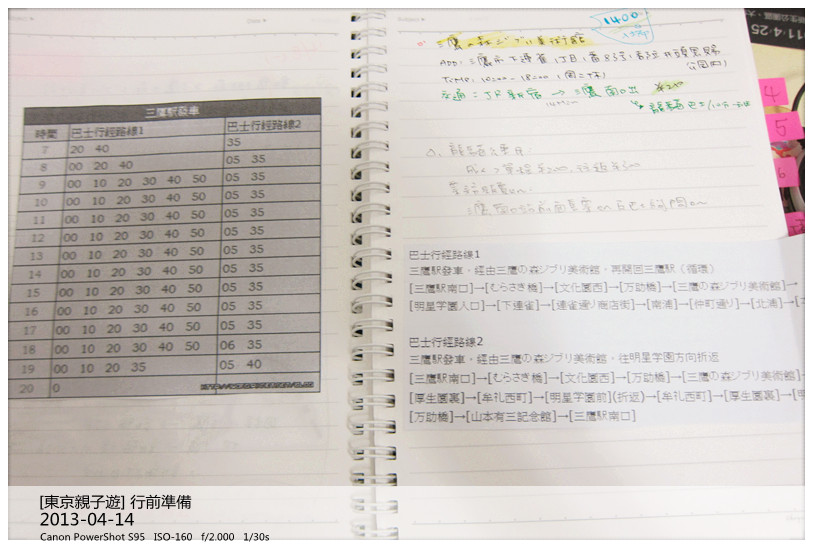 三鷹駅發車
時間 巴士行經路線1 巴士行經路線2
7 20 40 35
8 00 20 40 05 35
9 00 10 20 30 40 50 05 35
10 00 10 20 30 40 50 05 35
11 00 10 20 30 40 50 05 35
12 00 10 20 30 40 50 05 35
13 00 10 20 30 40 50 05 35
14 00 10 20 30 40 50 05 35
15 00 10 20 30 40 50 05 35
16 00 10 20 30 40 50 05 35
17 00 10 20 30 40 50 05 35
18 00 10 20 30 40 50 06 35
19 00 10 20 35 05 40
20 0
1400
三鷹の森ジブリ美術館
ADD: 三鷹市下連雀1丁目1番83号
TIME: 10:00 - 18:00
交通: JR新宿 → 三鷹 南口出
4
5
6
11-4-25
巴士行經路線1
三鷹駅發車，經由三鷹の森ジブリ美術館，再開回三鷹駅（循環）
[三鷹駅南口]→[むらさき橋]→[文化園西]→[万助橋]→[三鷹の森ジブリ美術館]→
[明星学園入口]→[下連雀]→[連雀通り商店街]→[南浦]→[仲町通り]→[北浦]→
巴士行經路線2
三鷹駅發車，經由三鷹の森ジブリ美術館，往明星学園方向折返
[三鷹駅南口]→[むらさき橋]→[文化園西]→[万助橋]→[三鷹の森ジブリ美術館]
[厚生園裏]→[牟礼西町]→[明星学園前](折返)→[牟礼西町]→[厚生園裏]→
[万助橋]→[山本有三記念館]→[三鷹駅南口]
[東京親子遊] 行前準備
2013-04-14
Canon PowerShot S95 ISO-160 f/2.000 1/30s